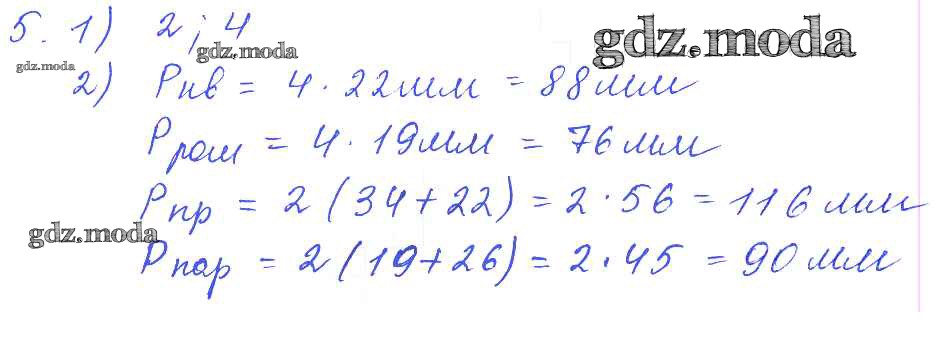 5. 1) 2; 4
gdz.moda
gdz.moda
gdz.moda
2) Pкв = 4 · 22мм = 88мм
Pром = 4 · 19мм = 76мм
Pпр = 2 (34+22) = 2 · 56 = 116 мм
gdz.moda
Pпар = 2 (19+26) = 2 · 45 = 90 мм